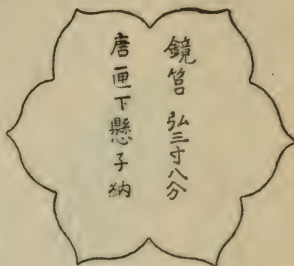 鏡筥 弘三寸八分
唐匣下懸子納